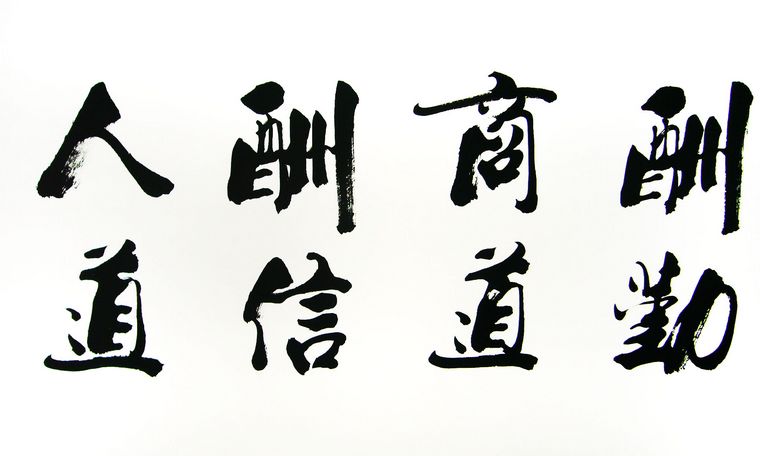 酬勤
商道
酬信
人道